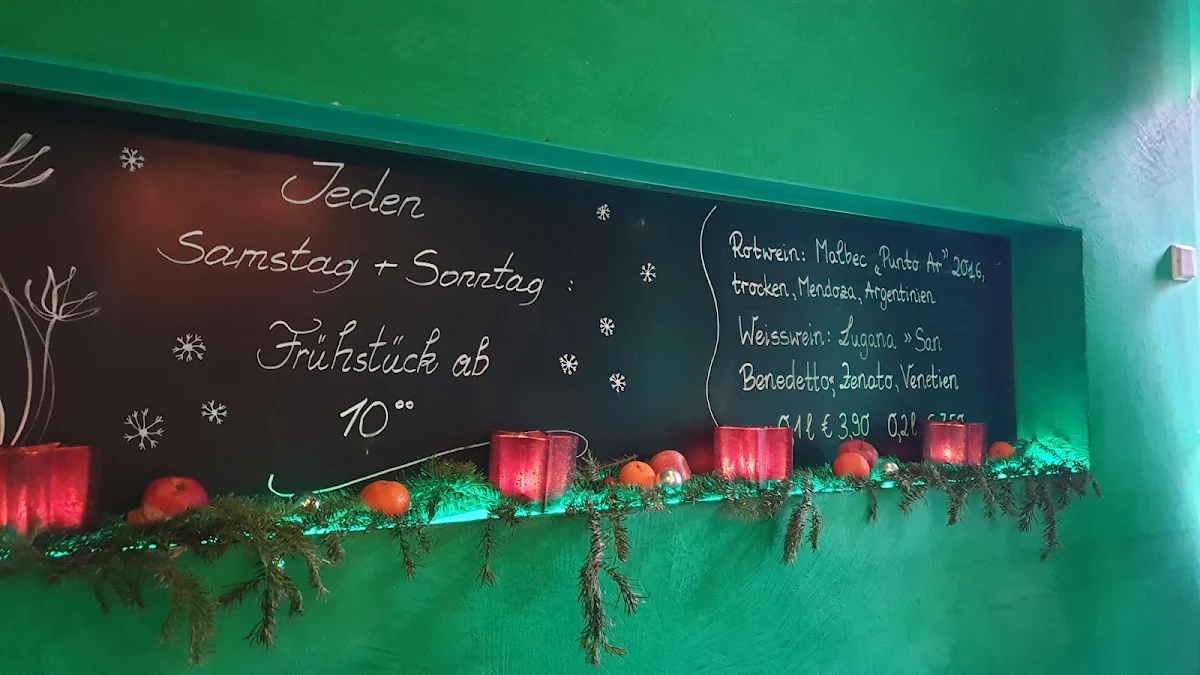 Jeden
Samstag + Sonntag :
Frühstück ab
10⁰⁰
Rotwein: Malbec „Punto Ar" 2016,
trocken, Mendoza, Argentinien
Weisswein: Lugana »San
Benedetto«, Zenato, Venetien
0,1 l € 3,90 0,2 l